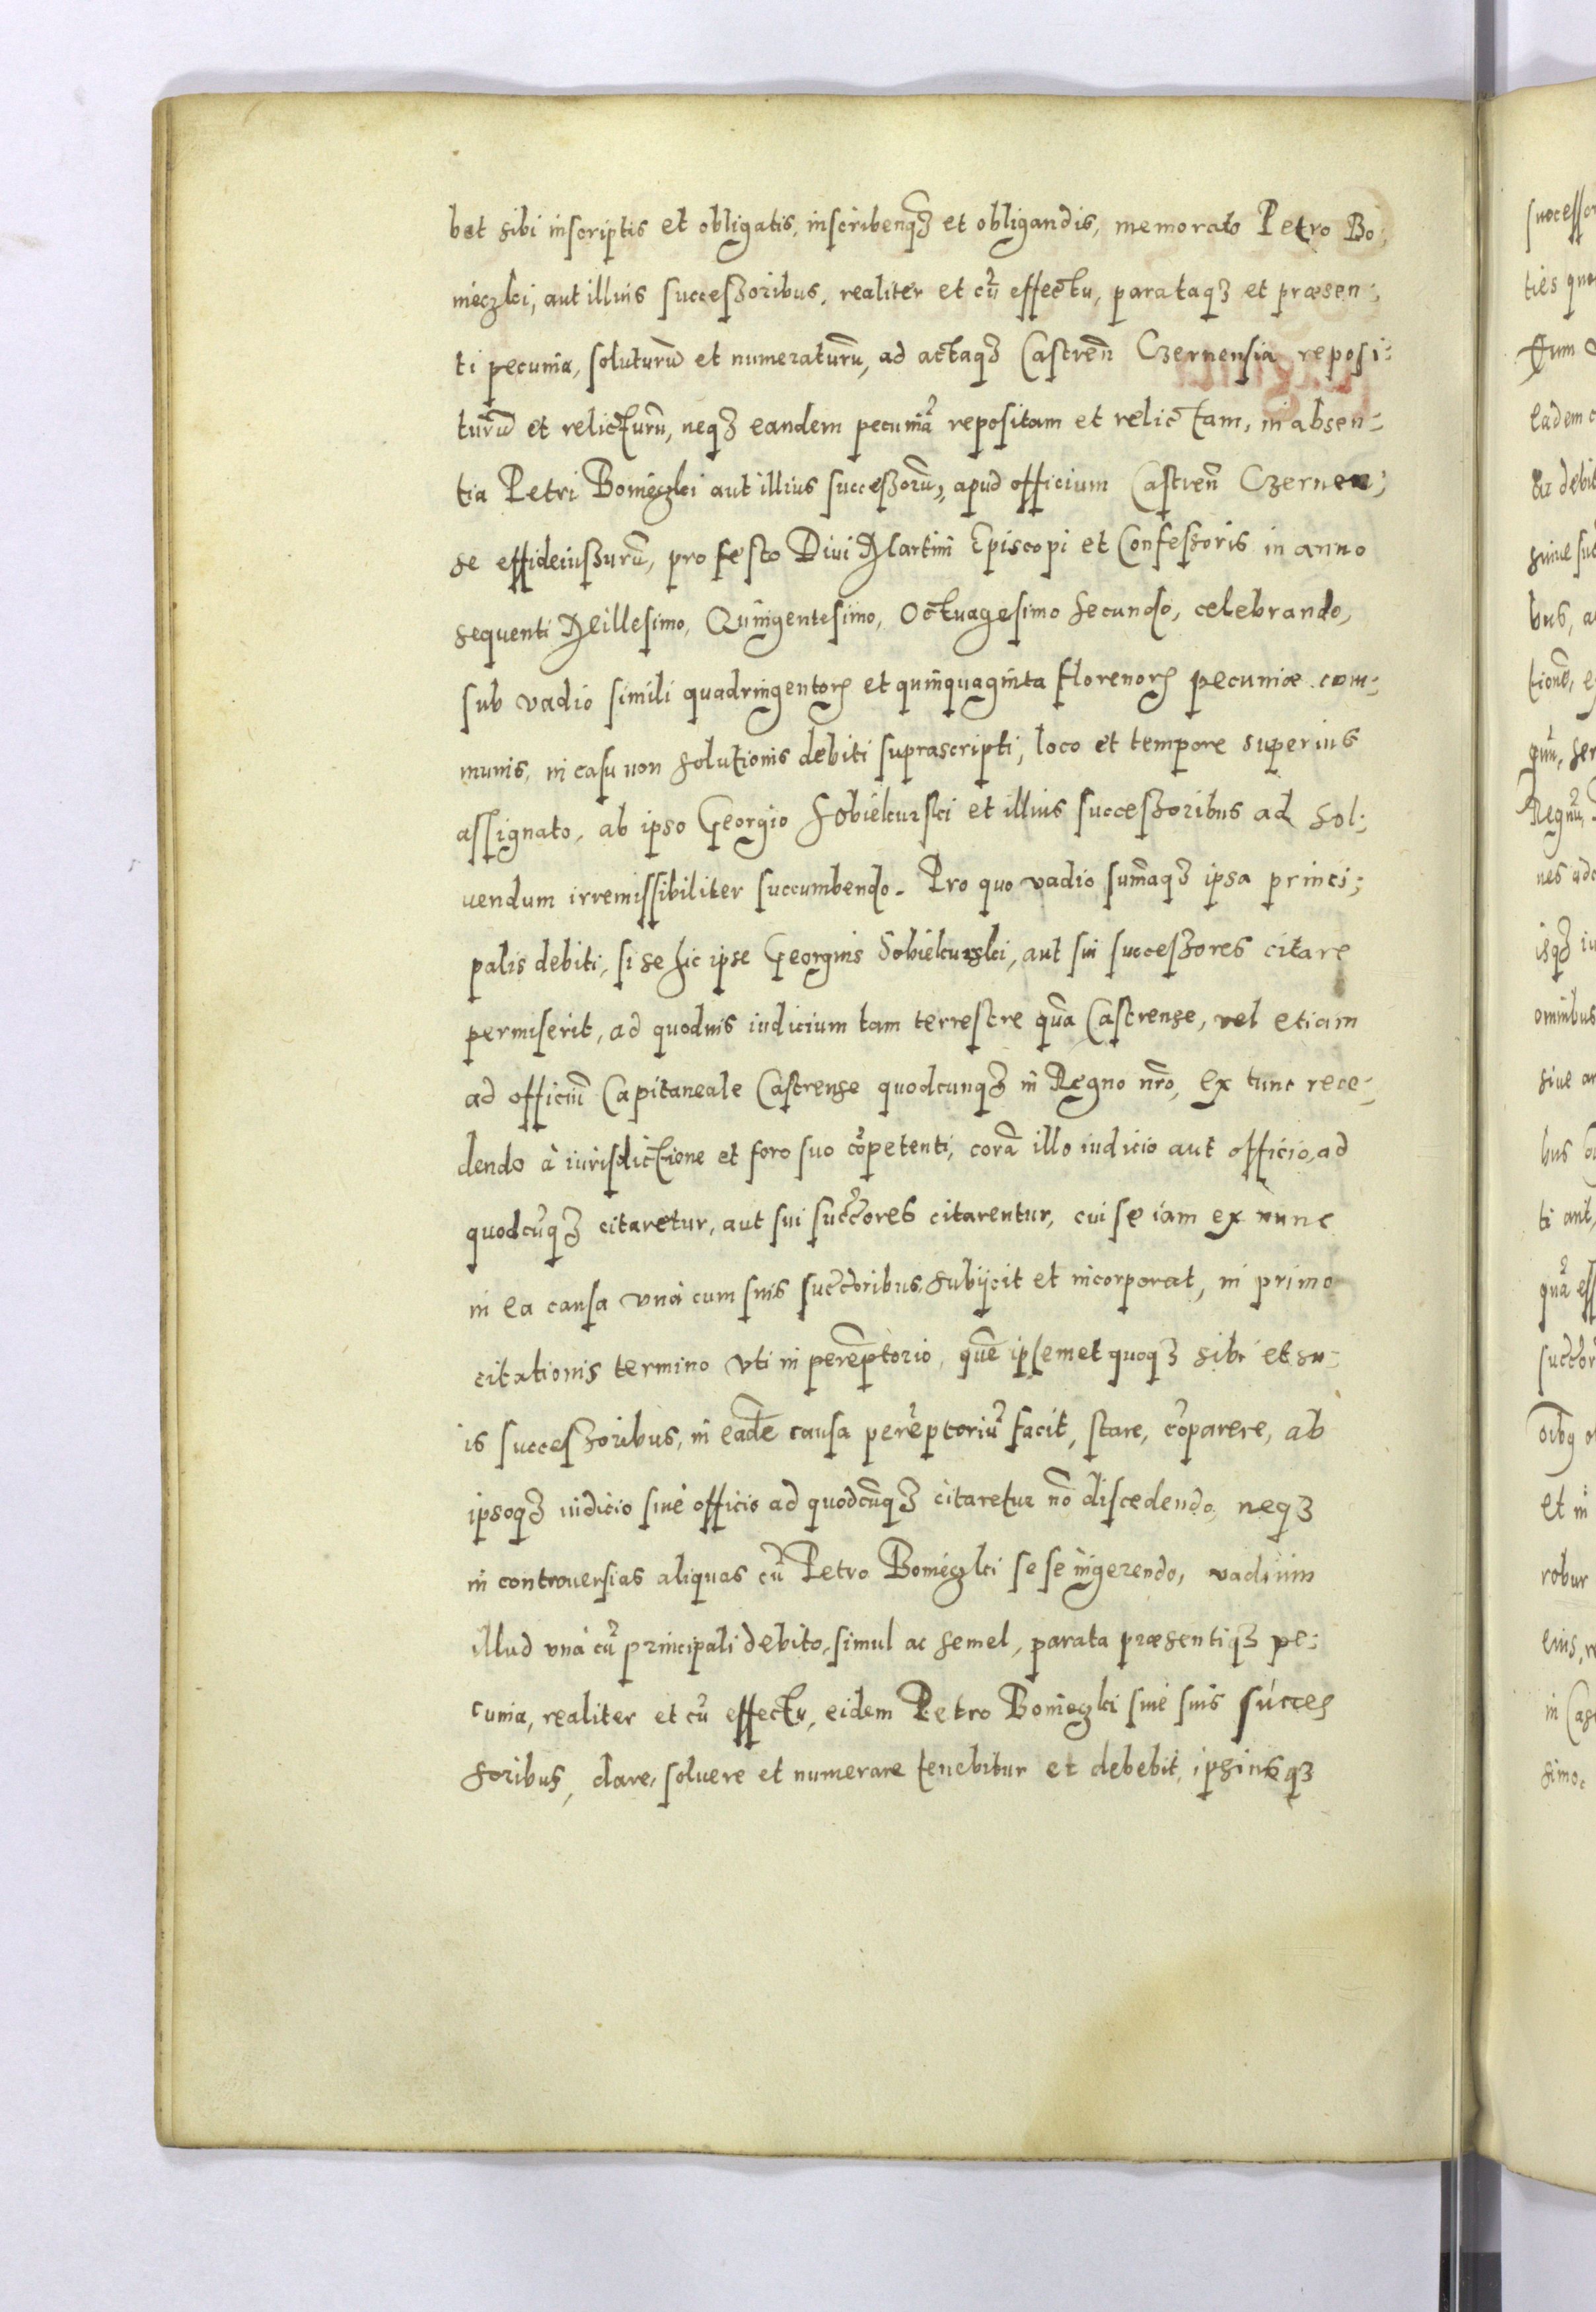 bet sibi inscriptis et obligatis, inscribenqꝫ et obligandis, memorato Petro Bo;
nieczki, aut illius successoribus, realiter et cū effectu, parataqꝫ et præsen:
ti pecunia, soluturū et numeraturū, ad actaqꝫ Castreñ Czernensia reposi:
turū et relicturū, neqꝫ eandem pecuniā repositam et relictam, in absen:
tia Petri Bonieczki aut illius successorū, apud officium Castreñ Czernen;
se effideiussurū, pro festo Diui Martini Episcopi et Confessoris in anno
sequenti Millesimo, Quingentesimo, Octuagesimo secundo, celebrando,
sub vadio simili quadringentorꝫ et quinquaginta florenorꝫ pecuniæ com:
munis, in casu non solutionis debiti suprascripti, loco et tempore superius
assignato, ab ipso Georgio Sobiekurski et illius successoribus ad sol:
uendum irremissibiliter succumbendo. Pro quo vadio sum̄aqꝫ ipsa princi;
palis debiti, si se hic ipse Georgius Sobiekurski, aut sui successores citare
permiserit, ad quoduis iudicium tam terrestre quā Castrense, vel etiam
ad officiū Capitaneale Castrense quodcunqꝫ in Regno nr̄o, ex tunc rece:
dendo à iurisdictione et foro suo cōpetenti, corā illo iudicio aut officio, ad
quodcūqꝫ citaretur, aut sui succ̄ores citarentur, cui se iam ex nunc
in ea causa vnà cum suis succ̄oribus, subijcit et incorporat, in primo
citationis termino vti in perēptorio, quē ipsemet quoqꝫ sibi et su:
is successoribus, in eadē causa perēptoriū facit, stare, cōparere, ab
ipsoqꝫ iudicio siue officio ad quodcūqꝫ citaretur nō discedendo, neqꝫ
in controuersias aliquas cū Petro Bonieczki se se ingerendo, vadium
illud vnà cū principali debito, simul ac semel, parata præsentiqꝫ pe:
cunia, realiter et cū effectu, eidem Petro Bonieczki siue suis succes
soribus, dare, soluere et numerare tenebitur et debebit, ipsiusqꝫ